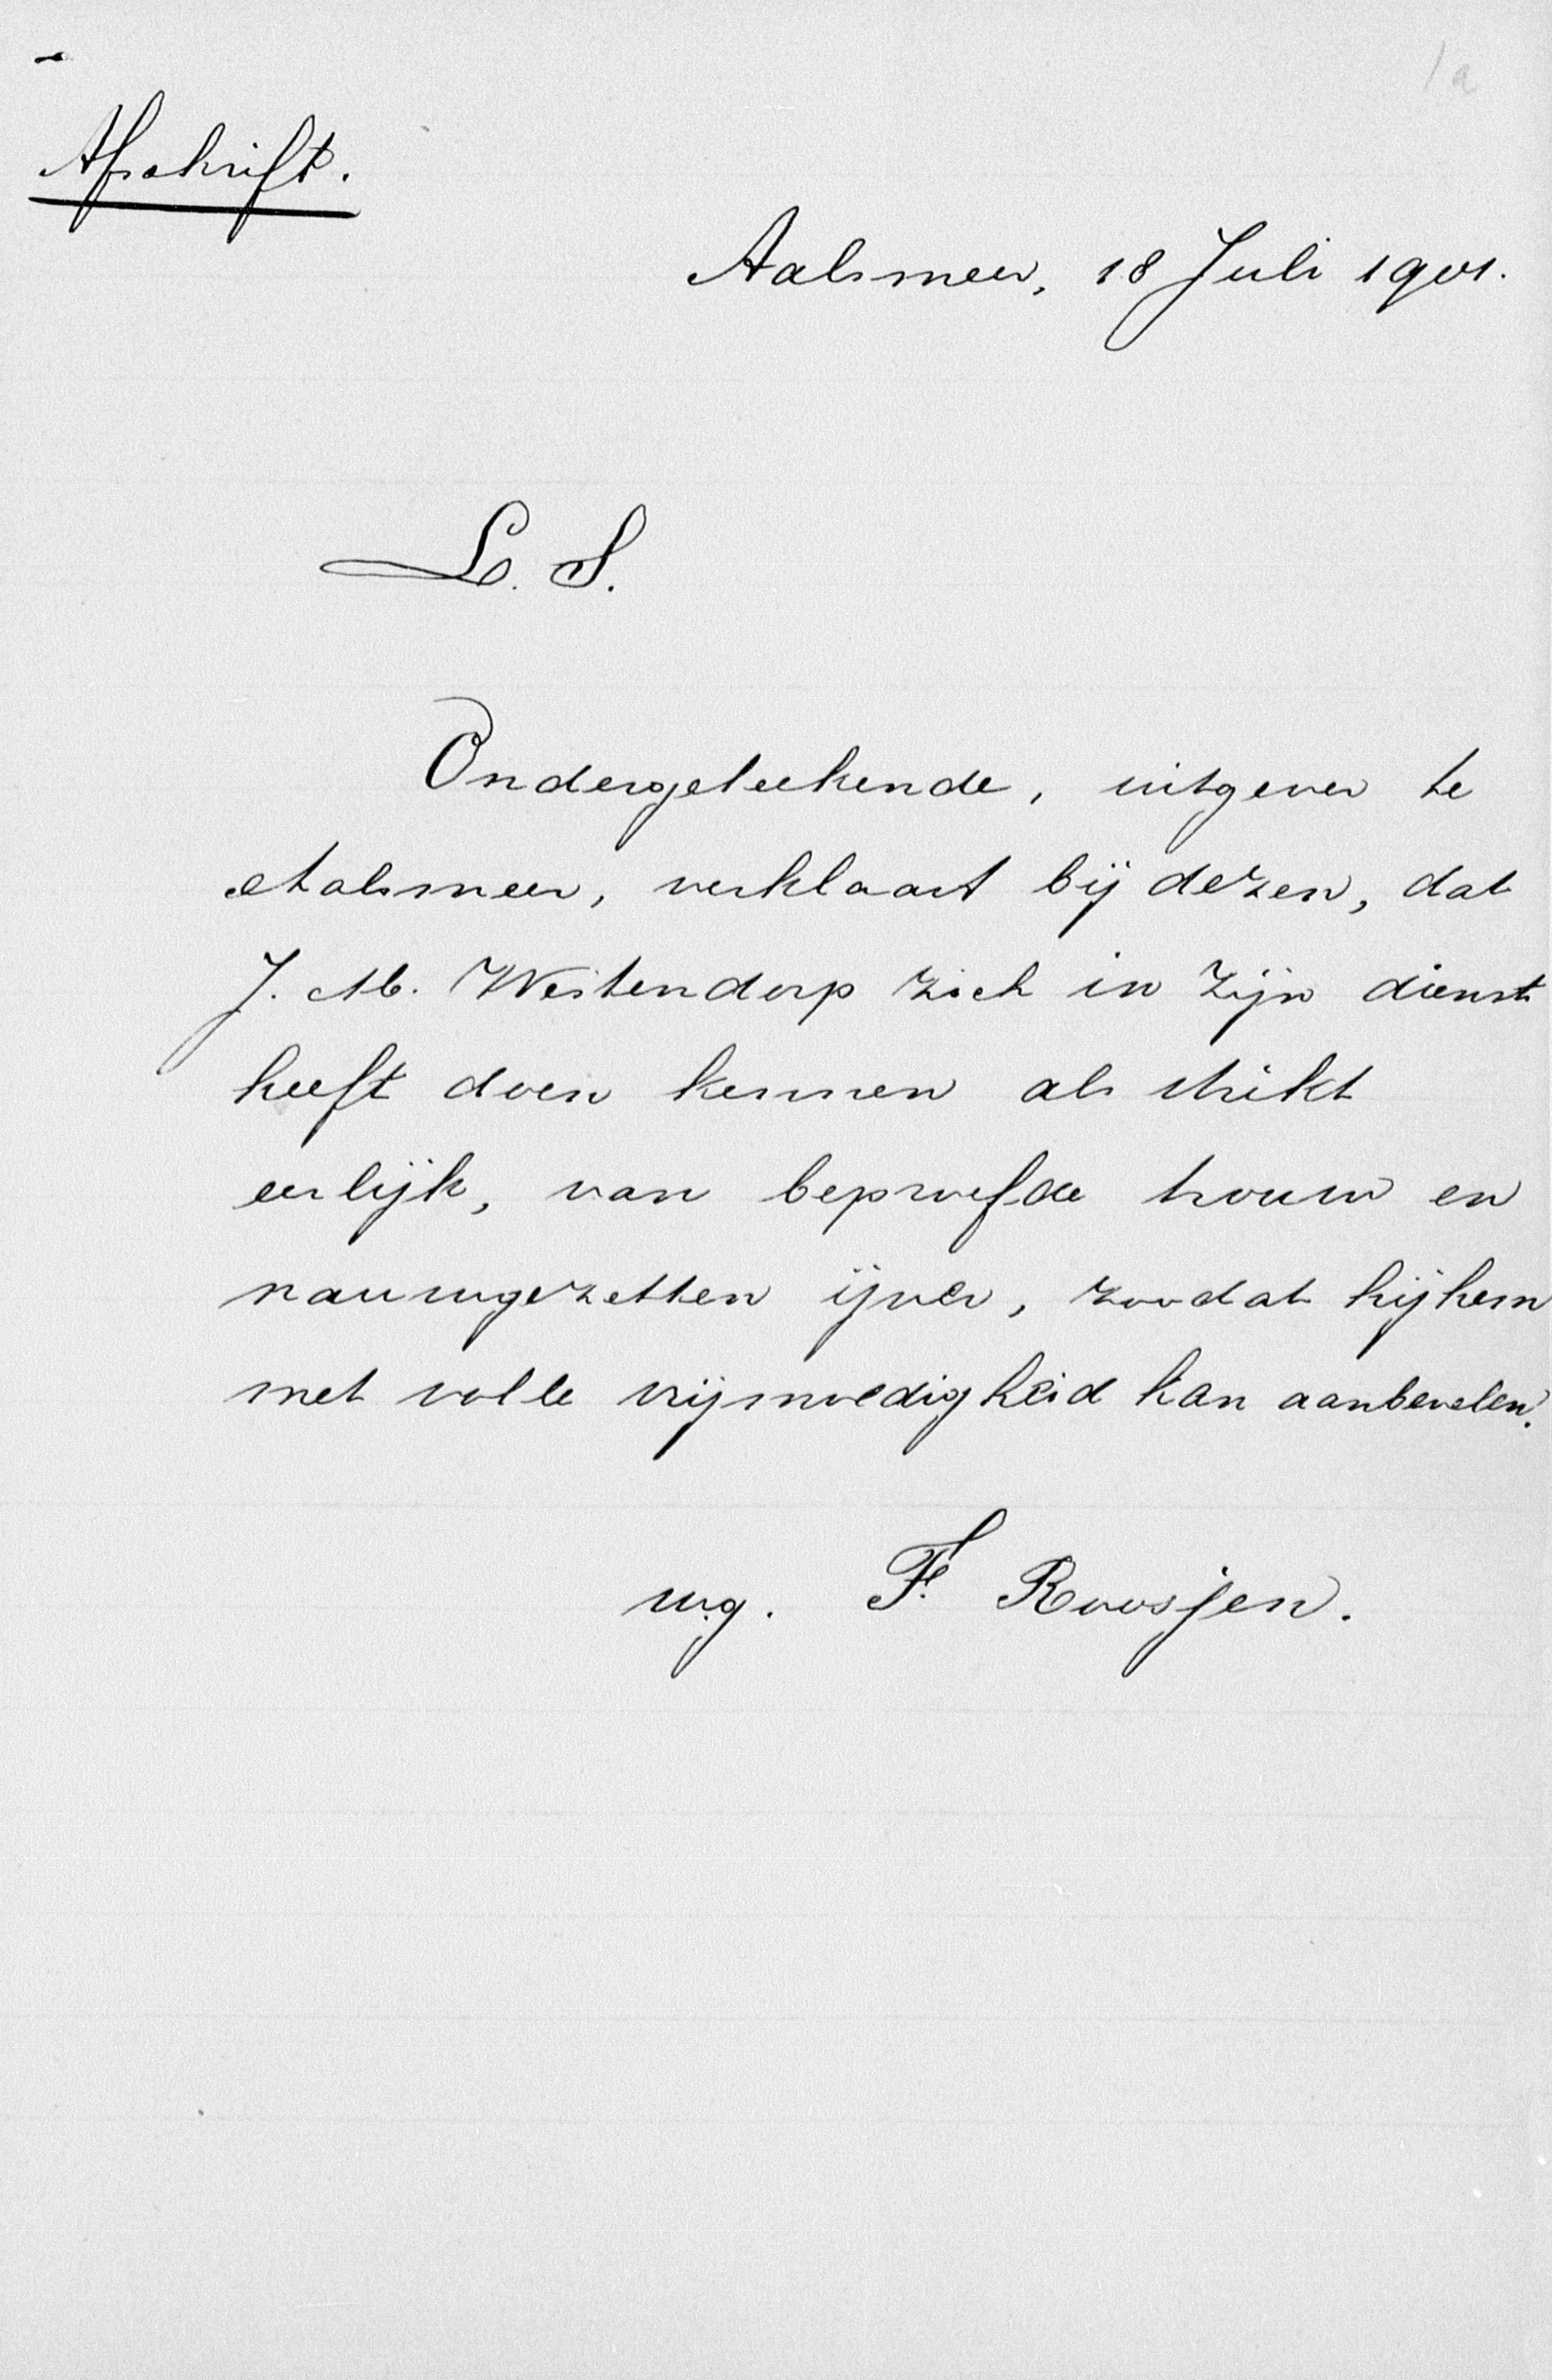 1a
Afschrift.
Aalsmeer, 18 Juli 1901.
L. S.
Ondergeteekende, uitgever te
Aalsmeer, verklaart bij dezen, dat
J. M. Westendorp zich in zijn dienst
heeft doen kennen als strikt
eerlijk, van beproefde trouw en
nauwgezetten ijver, zoodat hij hem
met volle vrijmoedigheid kan aanbevelen.
w.g. F. Roosjen.